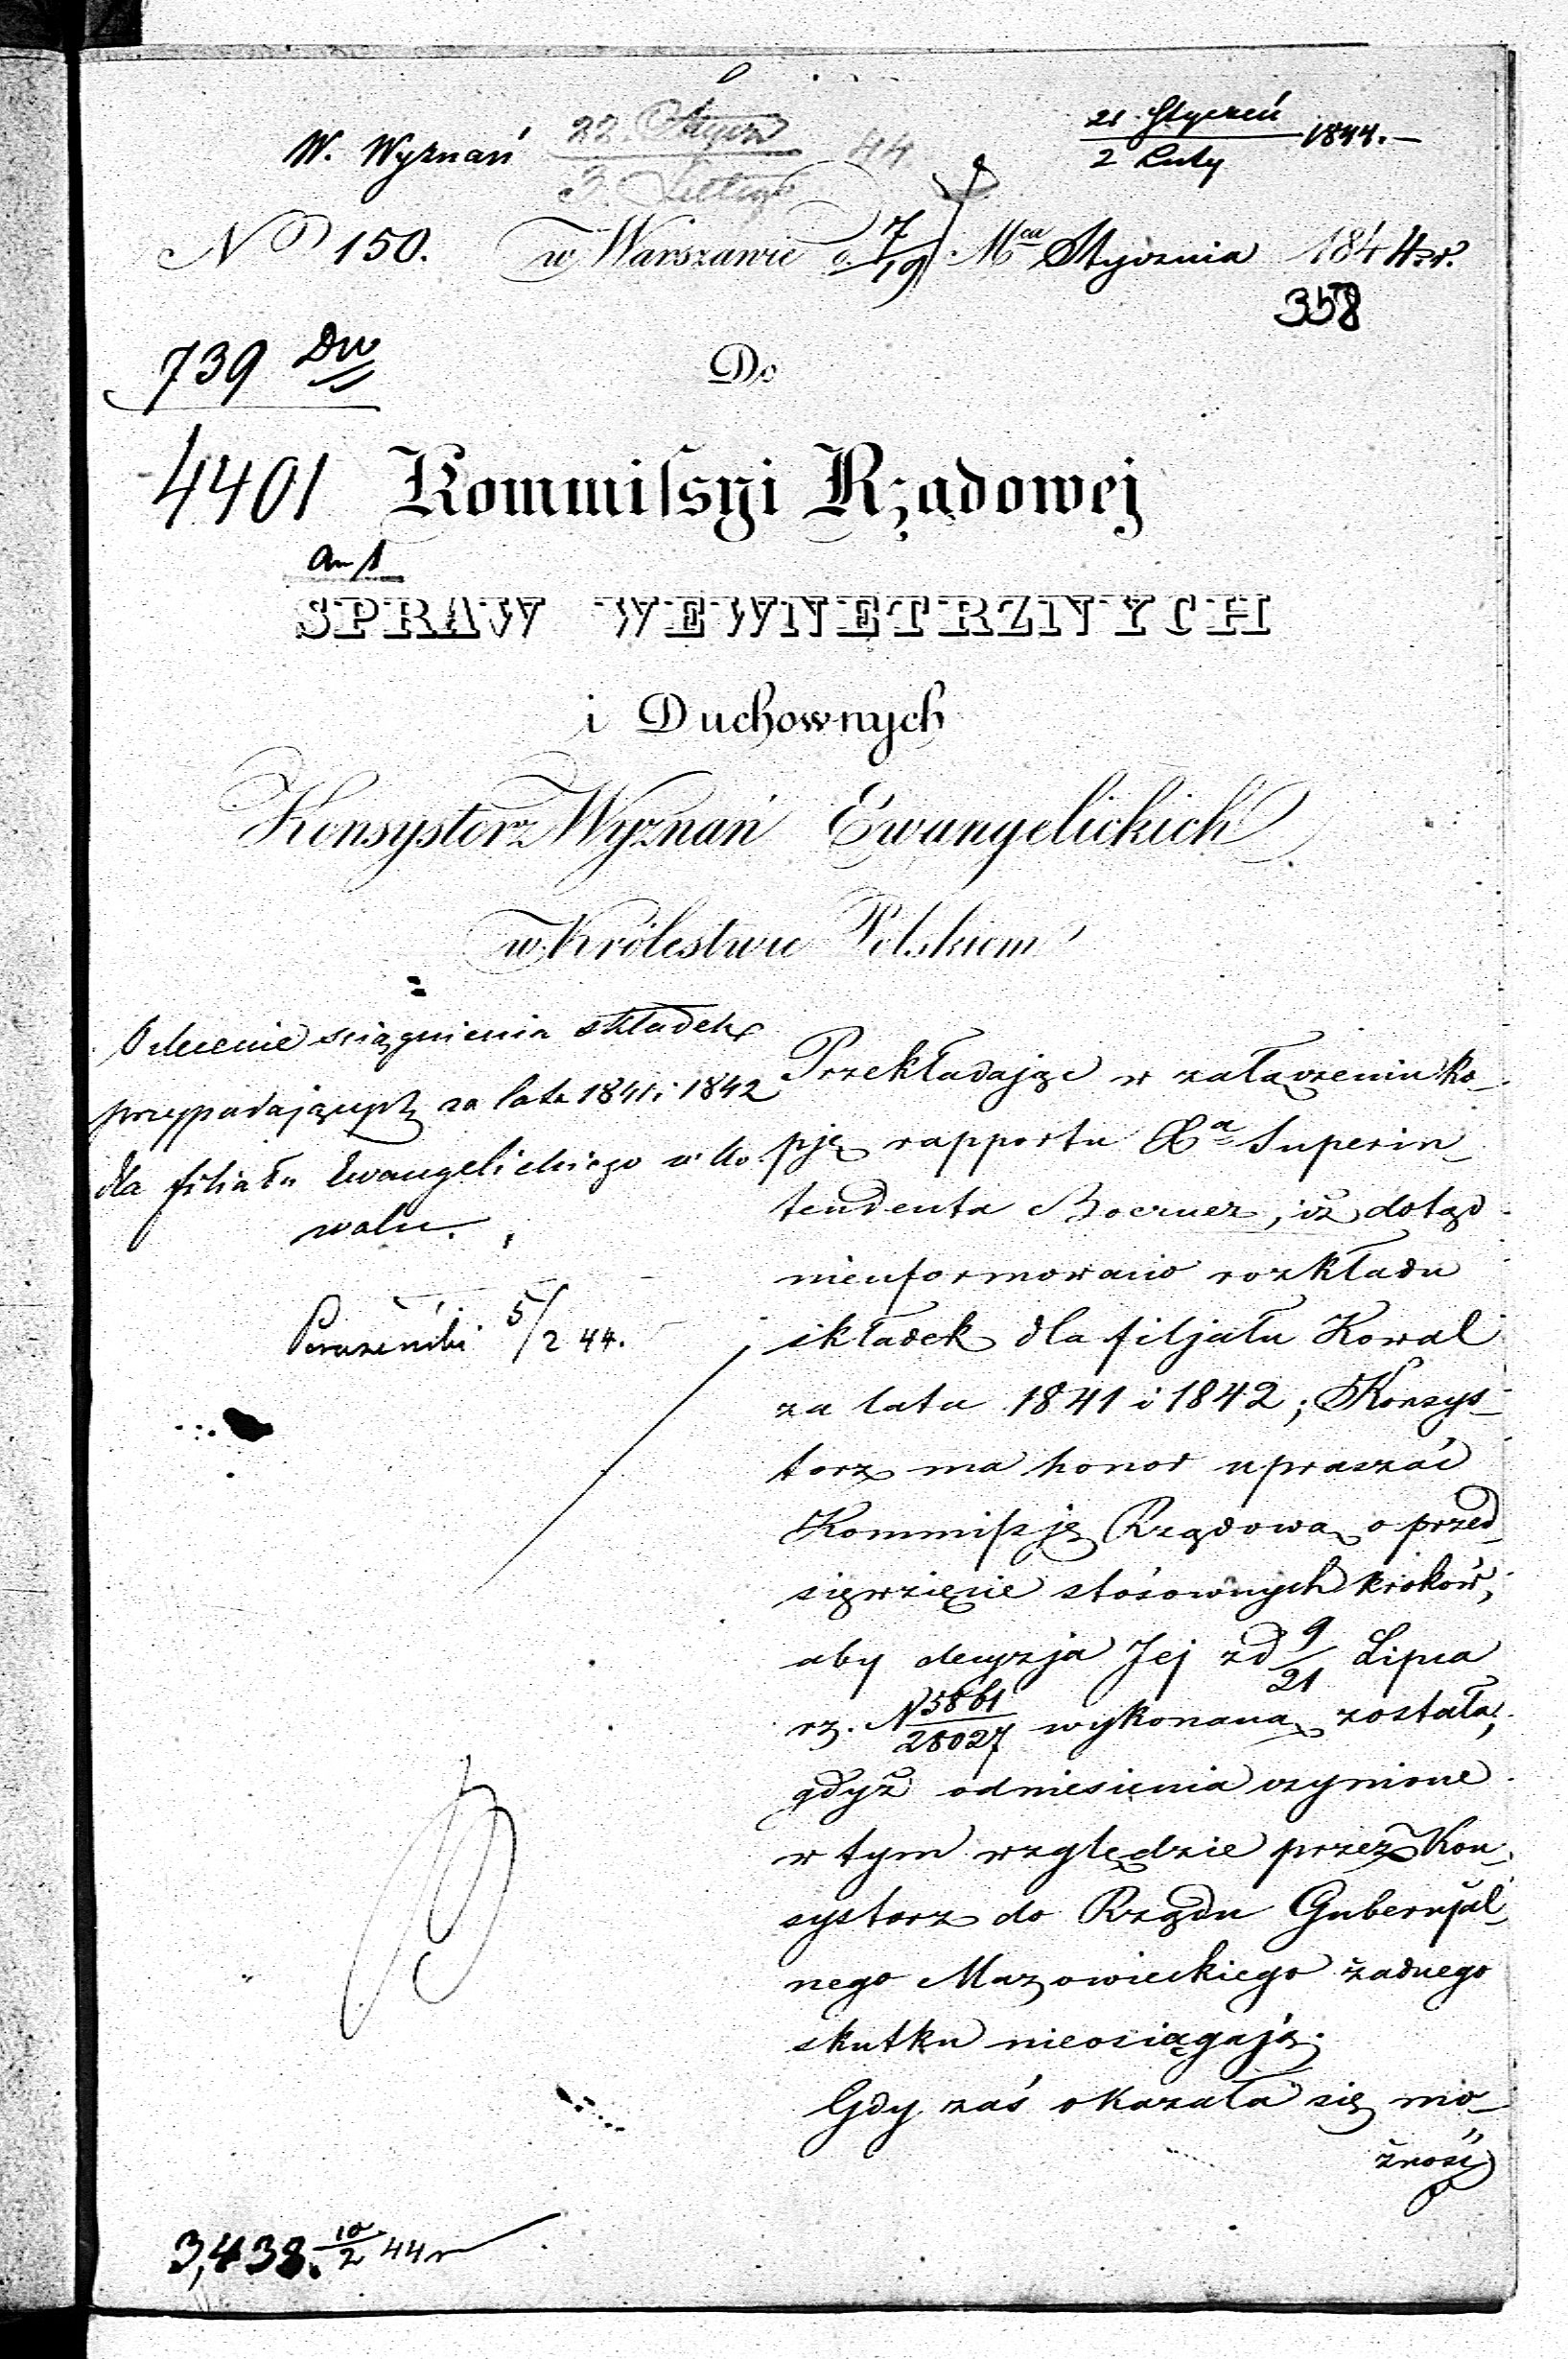 21. Styczeń
2 Luty 1844.—
W. Wyznań
22. Stycz
3. Luteg 44
No 150. w Warszawie d. 7/19 Mca Stycznia 1844 r.
358
739 Dw
Do
4401
Kommiſsyi Rządowej
an 1
SPRAW WEWNETRZNYCH
i Duchownych
Konsystorz Wyznań Ewangelickich
w Królestwie Polskiem
O zlecenie ściągnienia składek
przypadających za lata 1841 i 1842
dla filiału Ewangelickiego w Ko-
walu.
5/2 44.
Przekładając w załączeniu ko-
pję rapportu Xa Superin-
tendenta Boerner, iż dotąd
nieuformowano rozkładu
składek dla filjału Kowal
za lata 1841 i 1842; Konsys-
torz ma honor upraszać
Kommiſsję Rządową o przed-
sięwzięcie stósownych kroków,
aby decyzja Jej z d 9/21 Lipca
rz. N 5861/28027 wykonaną została,
gdyż odniesienia czynione
w tym względzie przez Kon-
systorz do Rządu Gubernjal-
nego Mazowieckiego żadnego
skutku nieosiągają.
Gdy zaś okazała się mo-
żność
3,438. 10/2 44